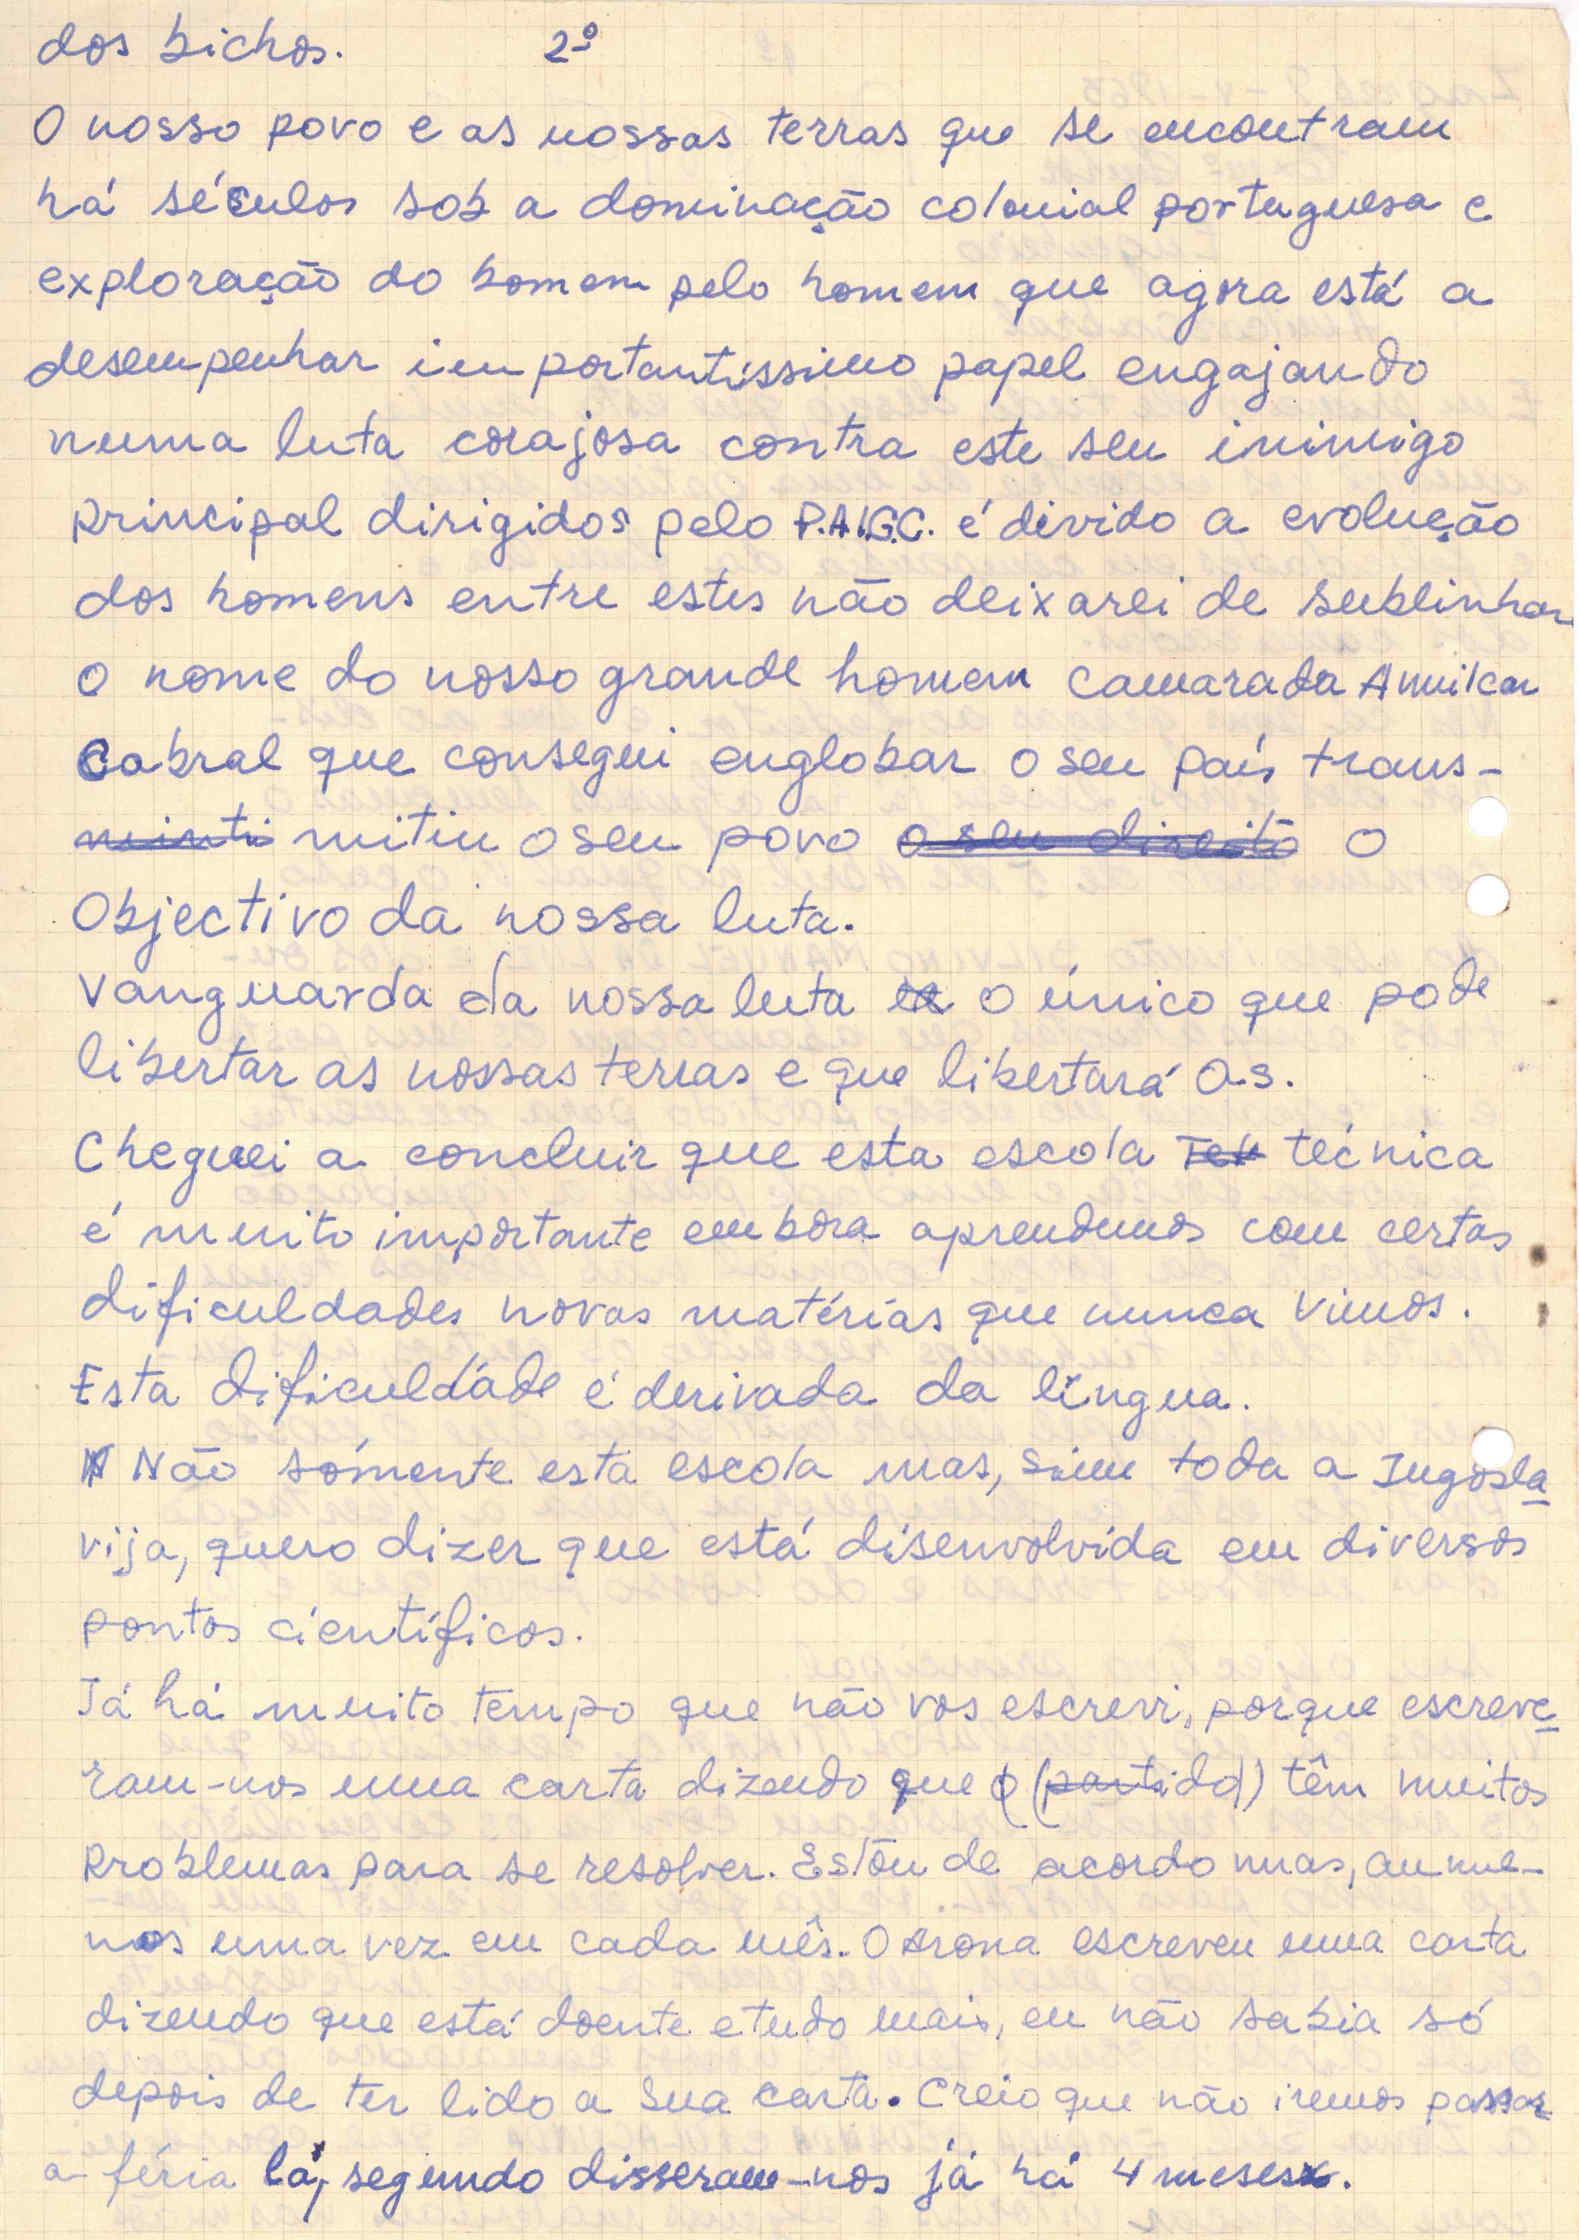 dos bichos. 2º
O nosso povo e as nossas terras que se encontram
há séculos sob a dominação colonial portuguesa e
exploração do homem pelo homem que agora está a
desempenhar importantíssimo papel engajando
numa luta corajosa contra este seu inimigo
principal dirigidos pelo P.A.I.G.C. é divido a evolução
dos homens entre estes não deixarei de sublinhar
o nome do nosso grande homem Camarada Amilcar
Cabral que consegui englobar o seu país trans-
minti mitiu o seu povo o seu direito o
Objectivo da nossa luta.
Vanguarda da nossa luta o único que pode
libertar as nossas terras e que libertará a.s.
Cheguei a concluir que esta escola Tek técnica
é muito importante embora aprendemos com certas
dificuldades novas matérias que nunca vimos.
Esta dificuldade é derivada da lingua.
N Não sómente esta escola mas, sim toda a Iugosla-
vija, quero dizer que está disenvolvida em diversos
pontos científicos.
Já há muito tempo que não vos escrevi, porque escreve-
ram-nos uma carta dizendo que o (partido) têm muitos
problemas para se resolver. Estou de acordo mas, au me-
nos uma vez em cada mês. O Arona escreveu uma carta
dizendo que está doente e tudo mais, eu não sabia só
depois de ter lido a sua carta. Creio que não iremos passar
a féria lá, segundo disseram-nos já há 4 meses.